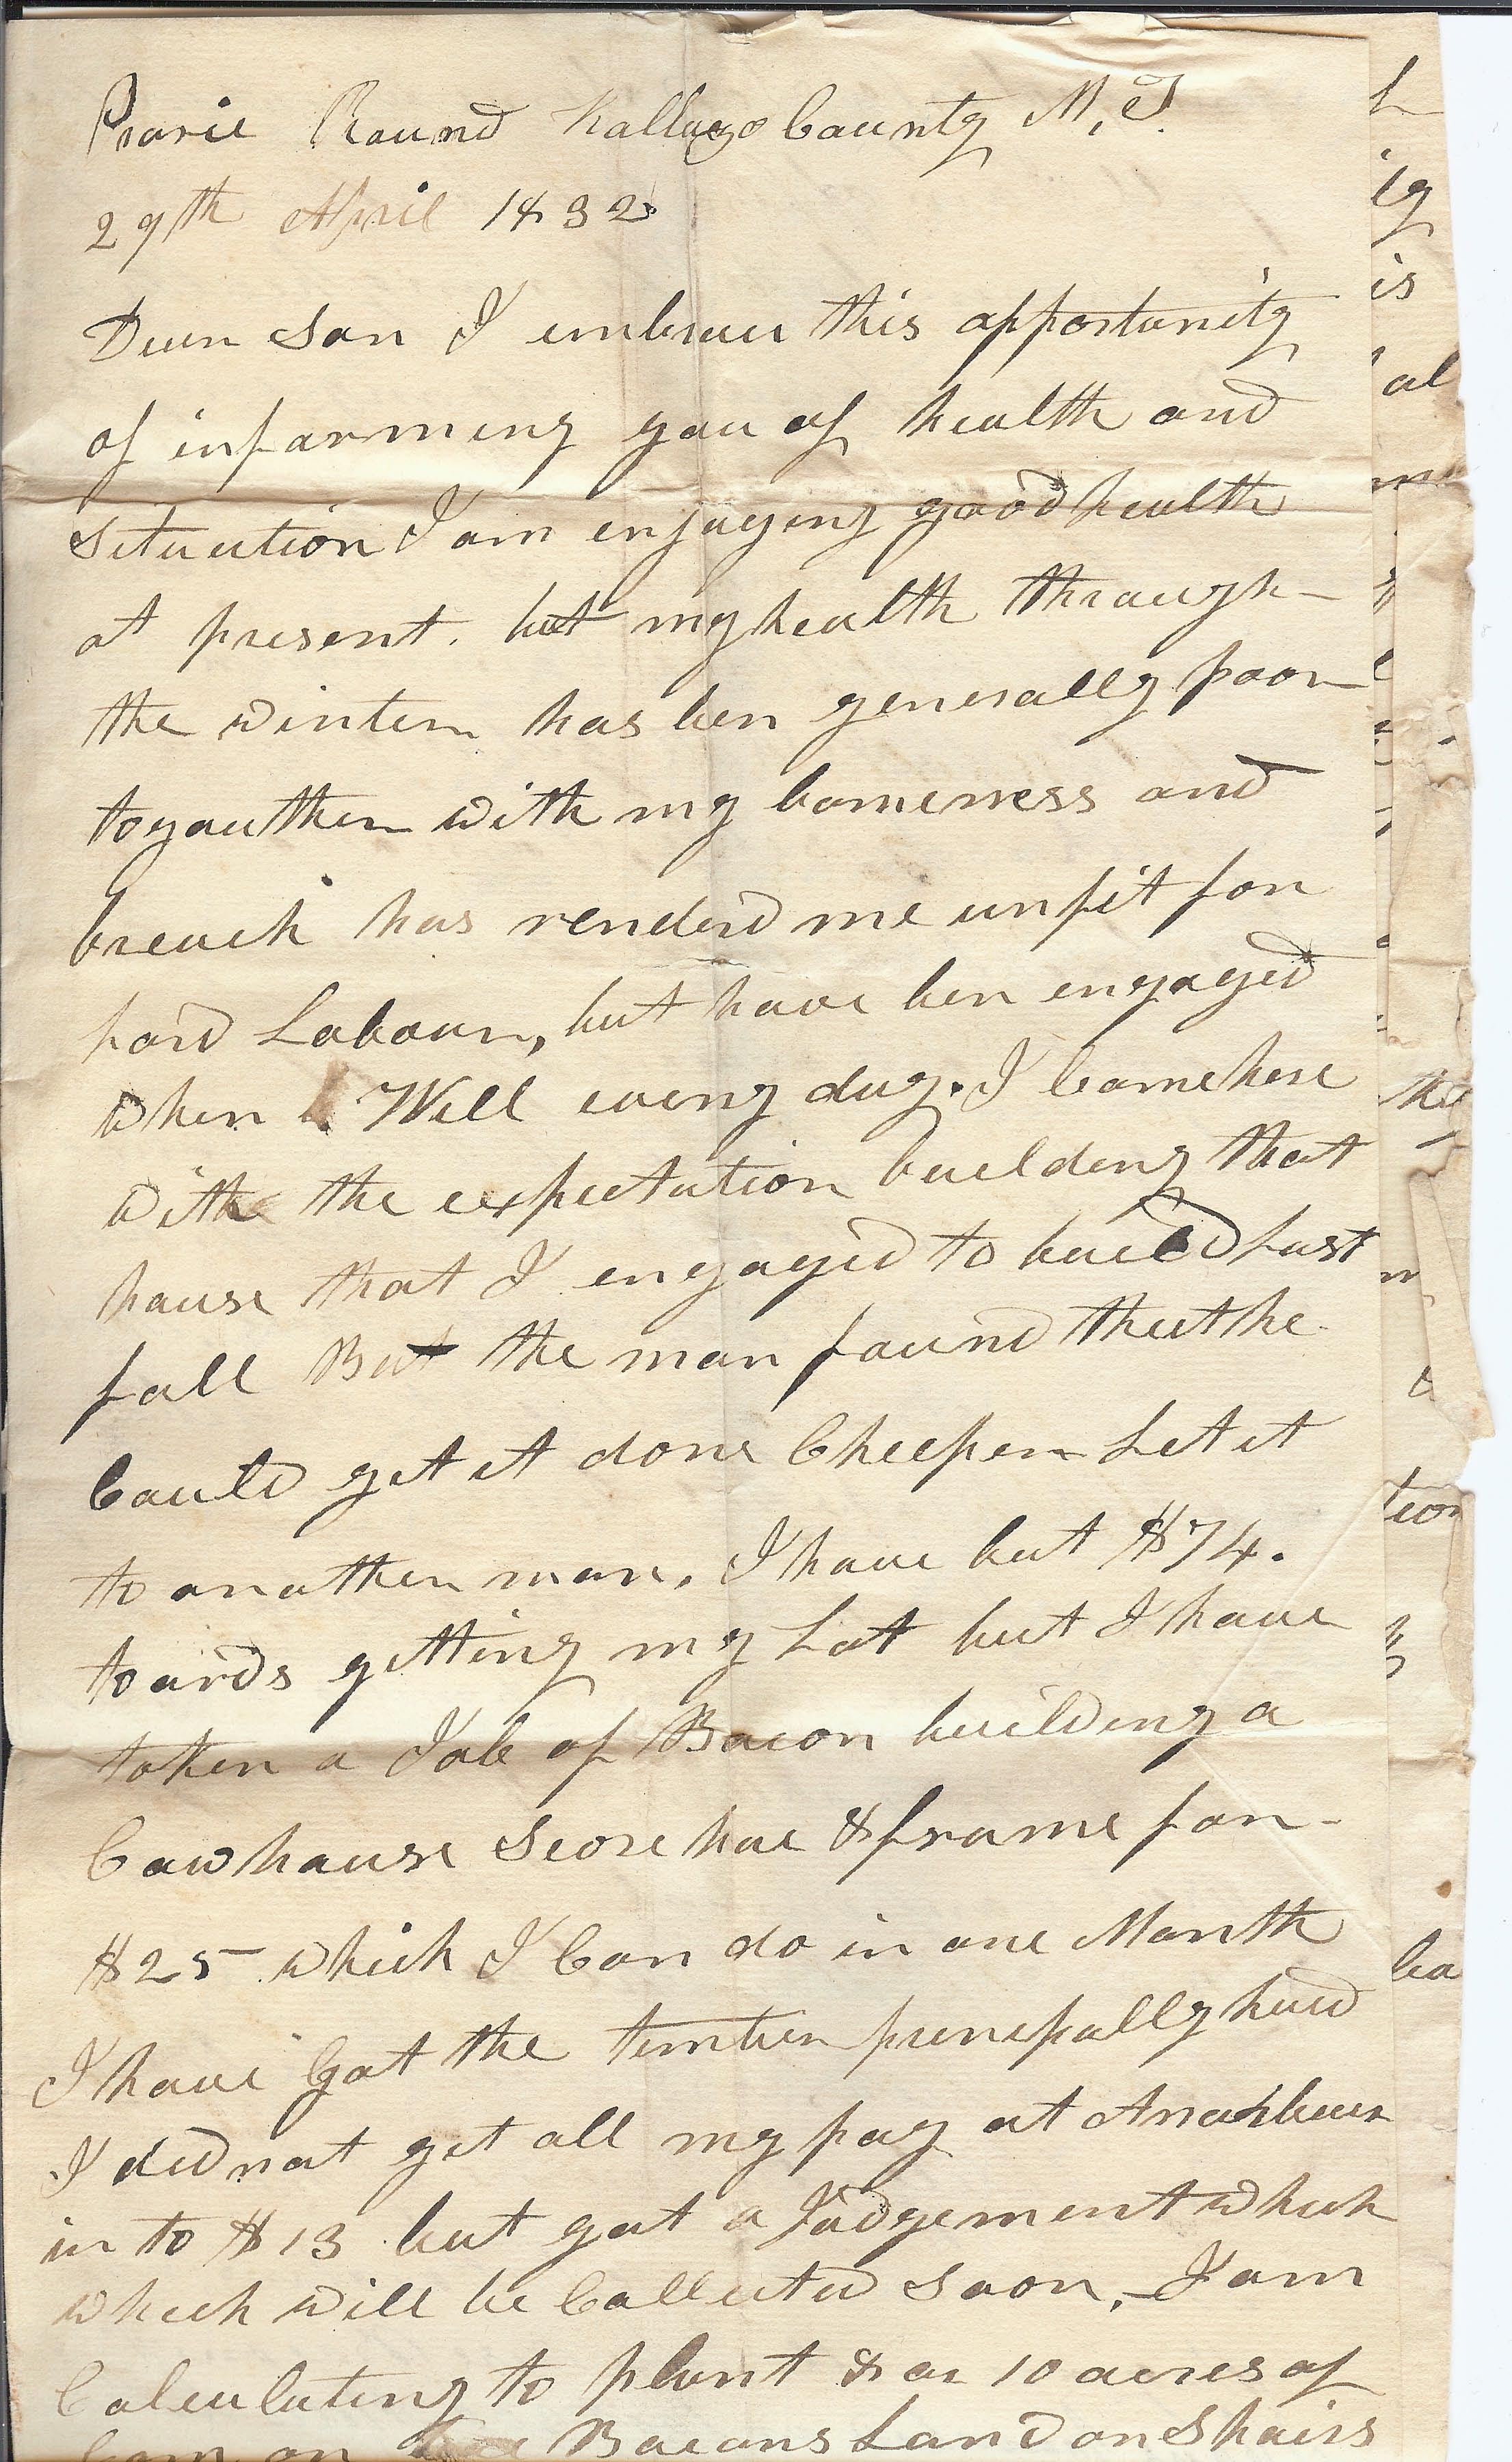 Prarie Round Kallazo County M, T.
29th April 1832
Dear Son I embrace this opportunity
of informing you of health and
Situation I am enjoying good health
at present. but my health through
the winter has ben generally poor
togauther with my lameness and
breach has renderd me unfit for
hard Labour, but have ben engaged
when Well every day. I Came here
with the expectation building that
house that I engaged to build Last
fall But the man found that he
Could get it done Cheeper Let it
to another man. I have but $74.
toards getting my Lot but I have
taken a Job of Bacon building a
Cowhouse Score hue & frame for
$25 which I Can do in one Month
I have Got the timber principally hued
I did not get all my pay at
in to $13 but got a Judgement which
which will be Collected Soon, I am
Calculating to plant 8 or 10 acres of
Corn on Bacons Land on Shairs
L
ig
is
al
the
tion
ba